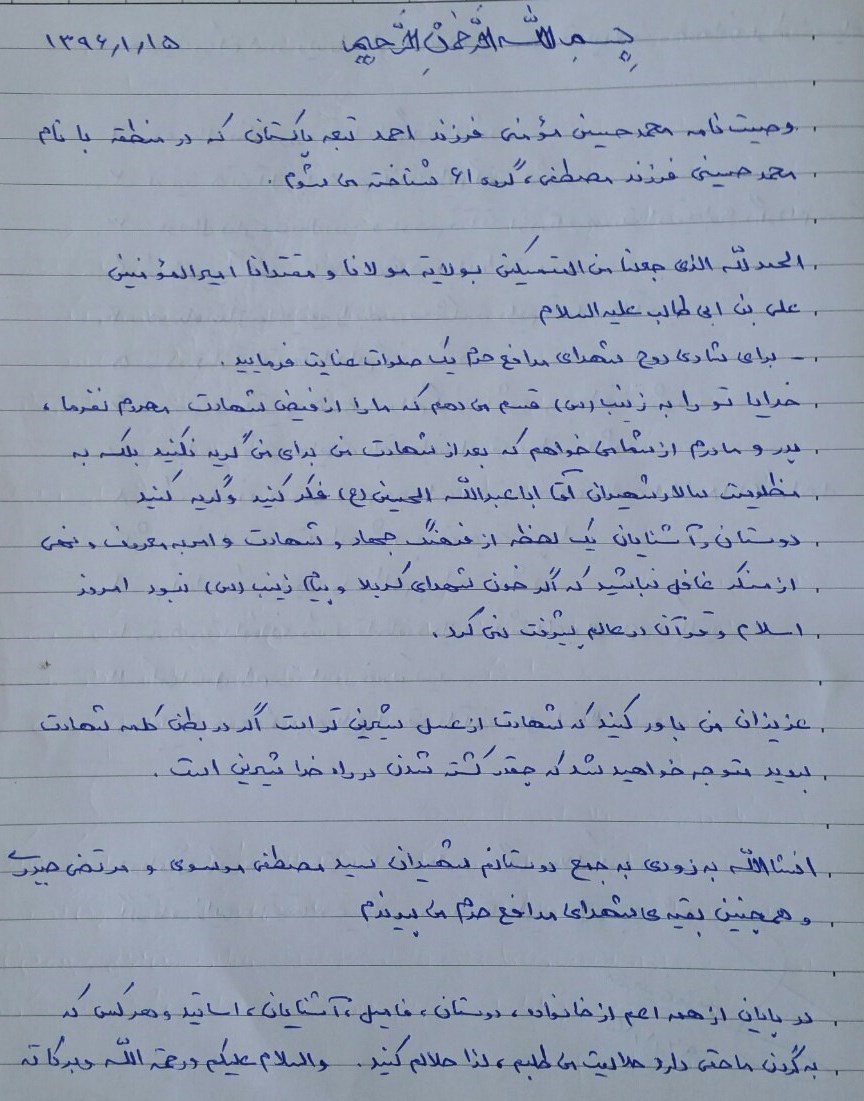 بسم الله الرحمن الرحیم ۱۳۹۶/۱/۱۵
وصیت نامه محمدحسین مؤمنی فرزند احمد تبعه پاکستان که در منطقه با نام
محمد حسینی فرزند مصطفی، گروه ۶۱ شناخته می شوم.
الحمدلله الذی جعلنا من المتمسکین بولایة مولانا و مقتدانا امیرالمؤمنین
علی بن ابی طالب علیه السلام
- برای شادی روح شهدای مدافع حرم یک صلوات عنایت فرمایید.
خدایا تو را به زینب (س) قسم می دهم که ما را از فیض شهادت محروم نفرما،
پدر و مادرم از شما می خواهم که بعد از شهادت من برای من گریه نکنید بلکه به
مظلومیت سالار شهیدان آقا اباعبدالله الحسین (ع) فکر کنید و گریه کنید
دوستان و آشنایان یک لحظه از فرهنگ جهاد و شهادت و امر به معروف و نهی
از منکر غافل نباشید که اگر خون شهدای کربلا و پیام زینب (س) نبود امروز
اسلام و قرآن در عالم پیشرفت نمی کرد.
عزیزان من باور کنید که شهادت از عسل شیرین تر است اگر در بطن کلمه شهادت
بروید متوجه خواهید شد که چقدر کشته شدن در راه خدا شیرین است.
انشاالله به زودی به جمع دوستانم شهیدان سید مصطفی موسوی و مرتضی حیدری
و همچنین بقیه ی شهدای مدافع حرم می پیوندم
در پایان از همه اعم از خانواده، دوستان، فامیل، آشنایان، اساتید و هر کس که
به گردن ما حقی دارد حلالیت می طلبم، لذا حلالم کنید. والسلام علیکم ورحمة الله وبرکاته